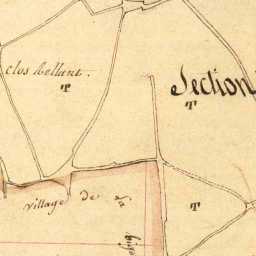 clos bellant.
Section
T
T
village de la
T
bige